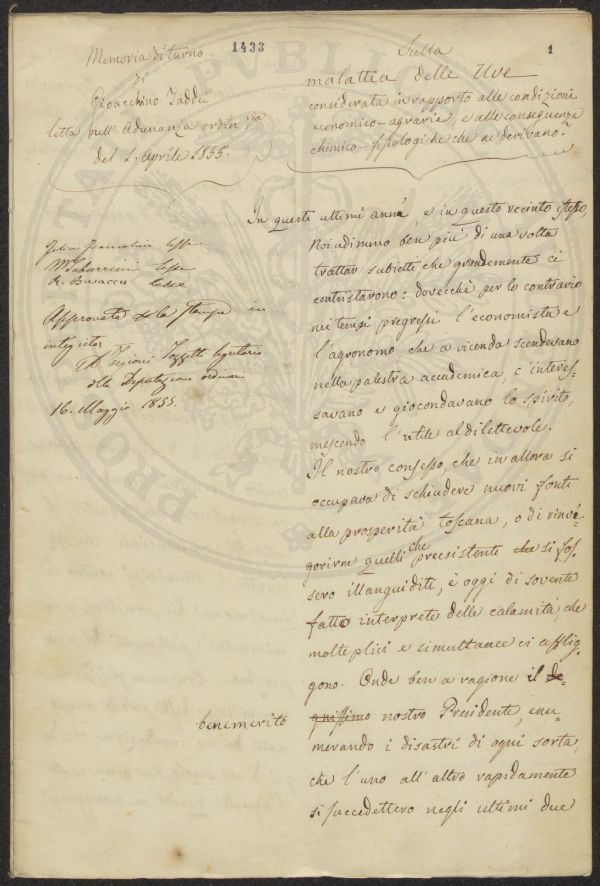 1433
1
Memoria di turno
di
Gioacchino Taddei
letta nell'Adunanza ordin.ria
del 1. Aprile 1855.
Sulla
malattia delle Uve
considerata in rapporto alle condizioni
economico-agrarie, e alle conseguenze
chimico-fisiologiche che ne derivano.
Approvata la stampa in
integrità
Segretario
della Deputazione
16. Maggio 1855.
In questi ultimi anni, e in questo recinto stesso,
Noi udimmo ben più di una volta
trattar subietti che grandemente ci
contristarono: dovecchè per lo contrario
nei tempi pregressi l'economista e
l'agronomo che a vicenda scendevano
nella palestra accademica, c'interes-
savano e giocondavano lo spirito,
mescendo l'utile al dilettevole.
Il nostro consesso, che in allora si
occupava di schiudere nuovi fonti
alla prosperità toscana, o di rinvi-
gorirne quelli che preesistenti si fos-
sero illanguiditi, è oggi di sovente
fatto interprete delle calamità, che
molteplici e simultanee ci afflig-
gono. Onde ben a ragione il de-
benemerito
gnissimo nostro Presidente, enu-
merando i disastri di ogni sorta,
che l'uno all'altro rapidamente
si succedettero negli ultimi due
PRO
PVBLI